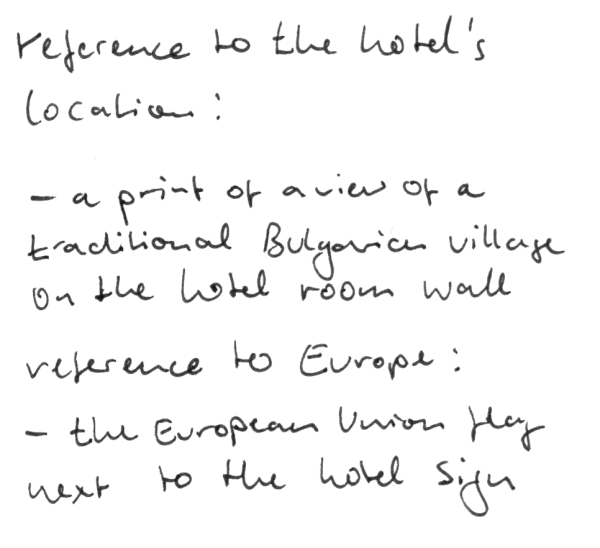 reference to the hotel's
location:
- a print of a view of a
traditional Bulgarian village
on the hotel room wall
reference to Europe:
- the European Union flag
next to the hotel sign